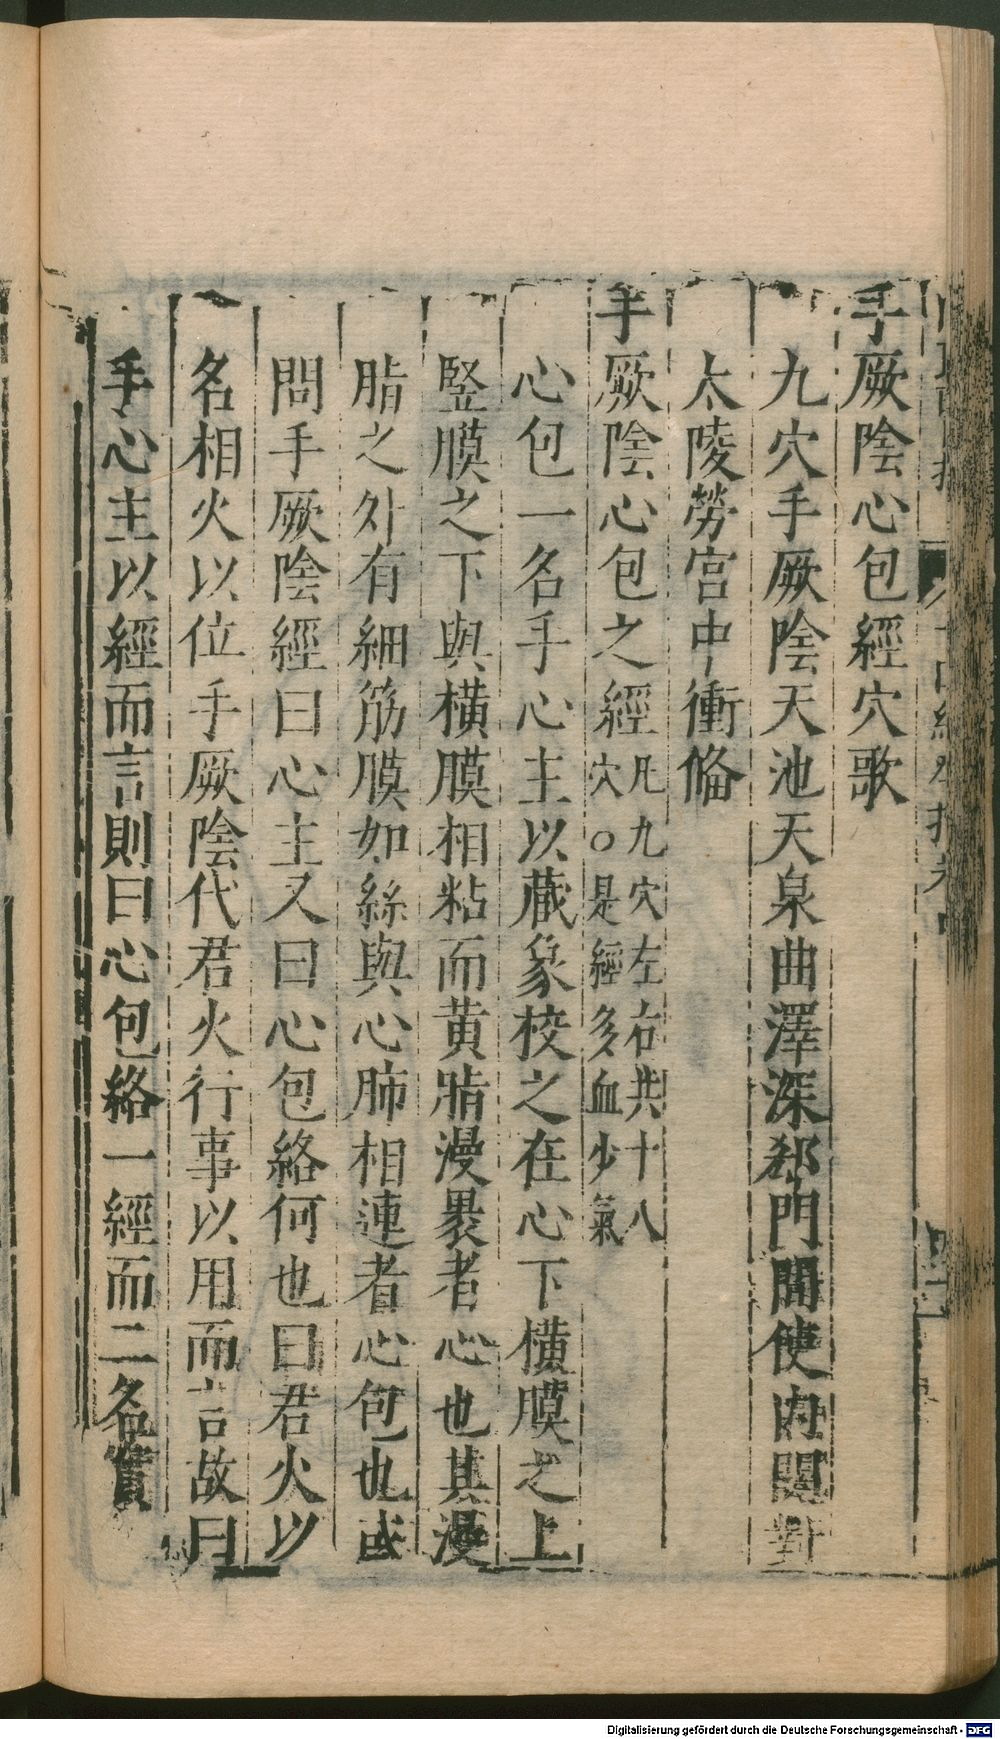 手厥陰心包經穴歌
九穴手厥陰天池天泉曲澤深郄門間使內關對
太陵勞宮中衝備
手厥陰心包之經凡九穴左右共十八穴○是經多血少氣
心包一名手心主以藏象校之在心下橫膜之上
竪膜之下與橫膜相粘而黃脂漫裹者心也其漫
脂之外有細筋膜如絲與心肺相連者心包也或
問手厥陰經曰心主又曰心包絡何也曰君火以
名相火以位手厥陰代君火行事以用而言故曰
手心主以經而言則曰心包絡一經而二名實
Digitalisierung gefördert durch die Deutsche Forschungsgemeinschaft - DFG